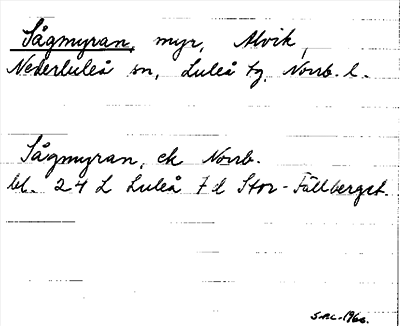 Sågmyran, myr, Alvik,
Nederluleå sn, Luleå tg. Norrb. l.
Sågmyran, ek Norrb.
bl. 24 L Luleå 7 l Stor-Fällberget.
1960.